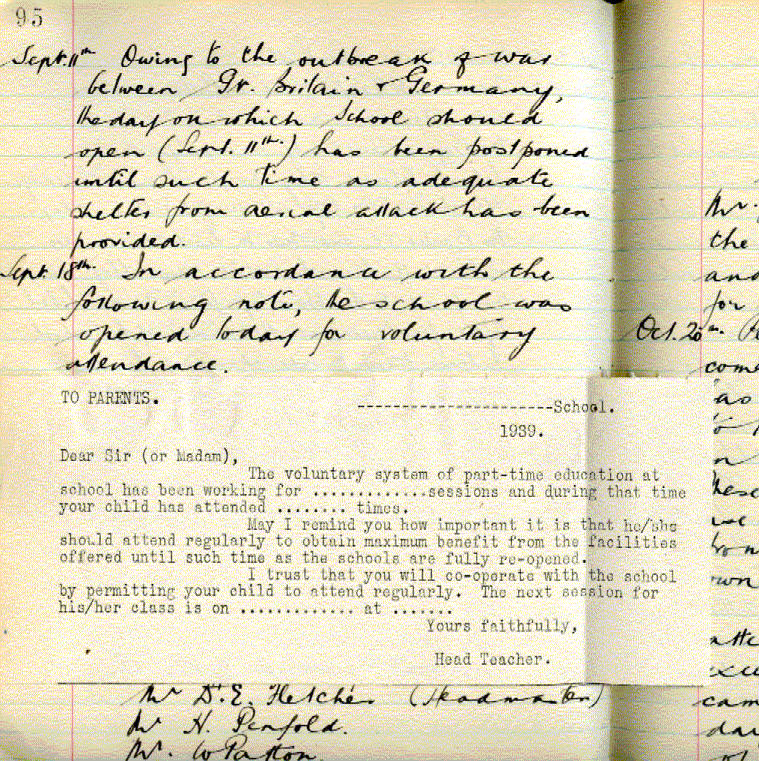 95
Sept. 11th Owing to the outbreak of war
between Gr. Britain & Germany,
the day on which School should
open (Sept. 11th.) has been postponed
until such time as adequate
shelter from aerial attack has been
provided.
Sept. 18th. In accordance with the
following note, the school was
opened today for voluntary
attendance.
TO PARENTS.
--------------------School.
1939.
Dear Sir (or Madam),
The voluntary system of part-time education at
school has been working for .............sessions and during that time
your child has attended ........ times.
May I remind you how important it is that he/she
should attend regularly to obtain maximum benefit from the facilities
offered until such time as the schools are fully re-opened.
I trust that you will co-operate with the school
by permitting your child to attend regularly. The next session for
his/her class is on ............. at .......
Yours faithfully,
Head Teacher.
Mr D. E. Fletcher (Headmaster)
Mr H. Penfold.
Mr. W Patton.
Mr.
the
and
for
Oct. 20th.
come
as